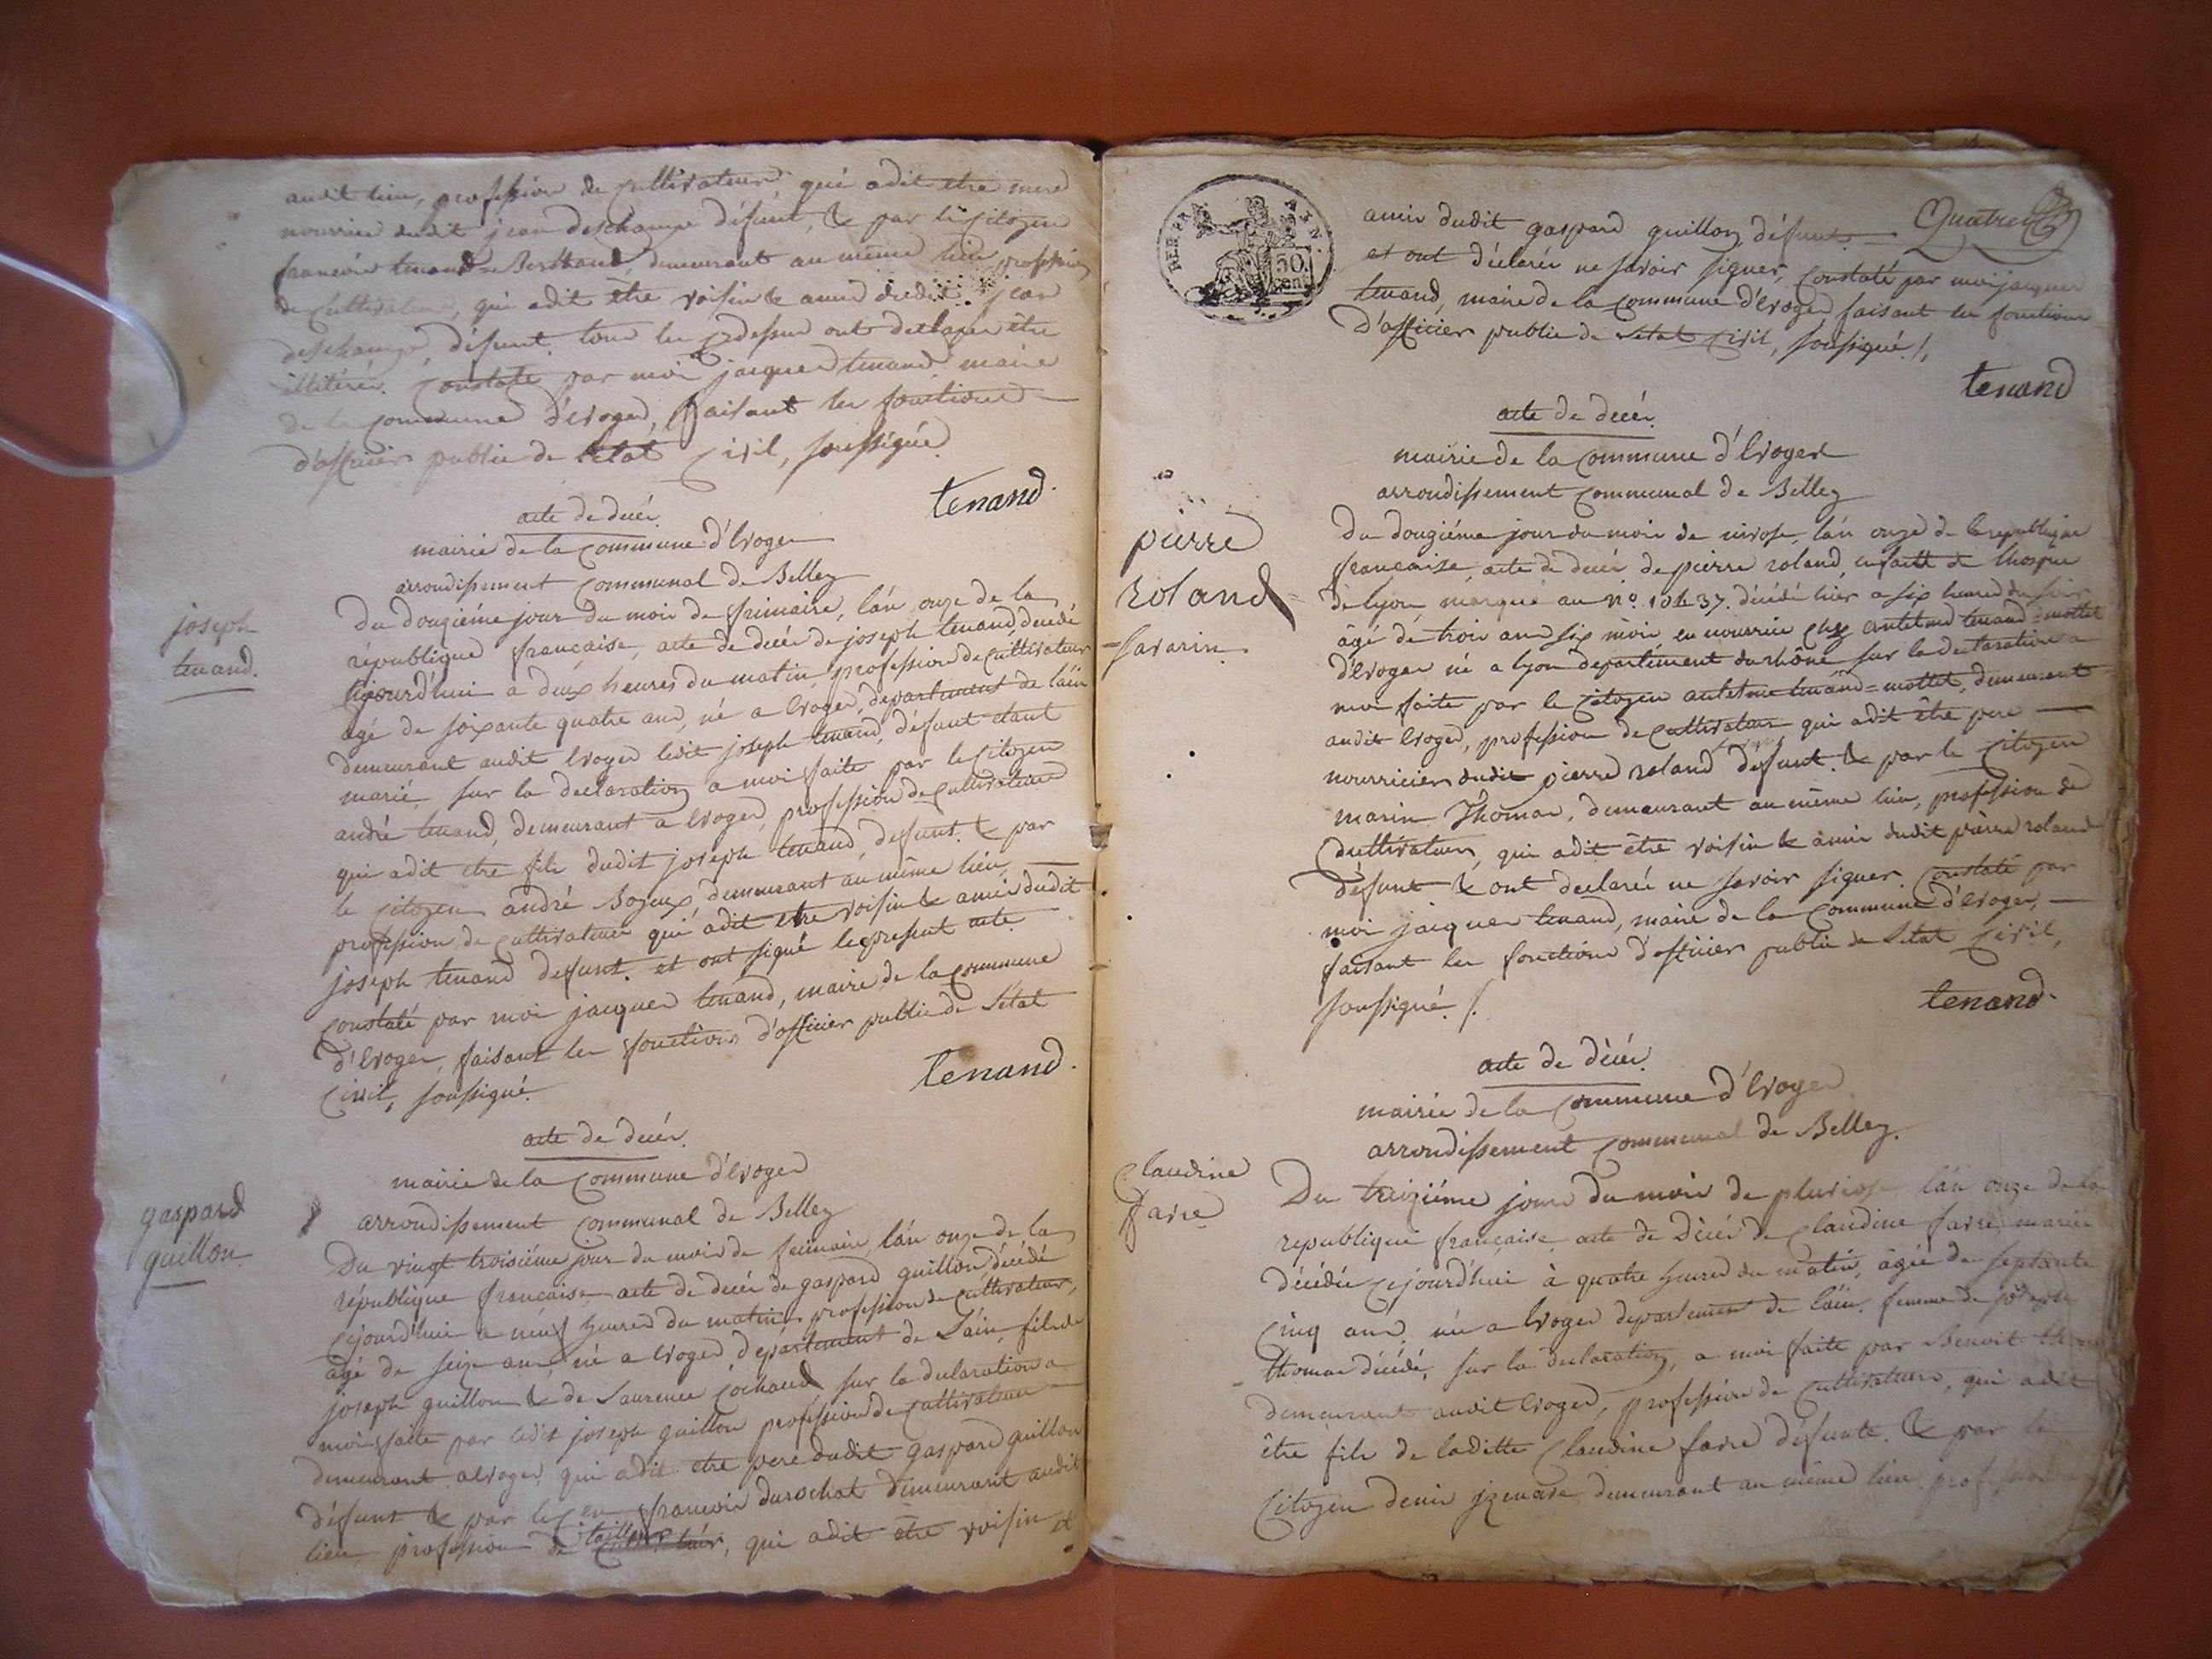 audit lieu, profession de Cultivateur, qui adit etre mere
nourrice dudit jean deschamps défunt, & par le Citoyen
francois tenand = Berthaud, demeurant au même lieu, profession
de Cultivateur, qui adit être voisin & amis dudit jean
deschamps, défunt. tous les Cydessus ont declarer être
illitérés. Constaté par moi jacques tenand maire
de la Commune d'Evoges, faisant les fonctions
d'officier public de l'état Civil, soussigné
tenand.
acte de decés.
mairie de la Commune d'Evoges
arrondissement Communal de Belley
joseph
tenand.
Du douziéme jour du mois de frimaire, l'án onze de la
république française, acte de decés de joseph tenand, decedé
Cejourd'hui a deux heures du matin, profession de Cultivateur
agé de soixante quatre ans, né a Evoges, departement de l'áin
demeurant audit Evoges ledit joseph tenand, défunt etant
marié sur la declaration a moi faite par le Citoyen
andré tenand, demeurant a Evoges, profession de Cultivateur
qui adit etre fils dudit joseph tenand, defunt. & par
le Citoyen andré Bozeux, demeurant au même lieu,
profession de Cultivateur qui adit etre voisin & amis dudit
joseph tenand defunt. et ont signé le present acte.
Constaté par moi jacques tenand, maire de la Commune
d'Evoges, faisant les fonctions d'officier public de l'état
Civil, soussigné.
tenand.
acte de decés.
mairie de la Commune d'Evoges
arrondissement Communal de Belley
gaspard
guillon.
Du vingt troisiéme jour du mois de frimaire, l'án onze de la
république française, acte de decés de gaspard guillon, décédé
Cejourd'hui a neuf heures du matin, profession de Cultivateur,
agé de seize ans, né a Evoges, département de l'áin, fils de
joseph guillon & de Laurence Cochaud, sur la declaration a
moi faite par ledit joseph guillon profession de Cultivateur
demeurant a Evoges, qui adit etre pere dudit gaspard guillon
défunt & par le Cen francois durochat demeurant audit
lieu, profession de tailleur, qui adit être voisin et
Quatre
amis dudit gaspard guillon, défunt.
et ont déclarés ne savoir signer, Constaté par moi jacques
tenand, maire de la Commune d'Evoges, faisant les fonctions
D'officier public de l'état Civil, soussigné ./.
REP. FRA.
50
cent
tenand
acte de decés.
mairie de la Commune d'Evoges
arrondissement Communal de Belley
pierre
roland =
= savarin
Du douziéme jour du mois de nivose, l'án onze de la republique
française, acte de decés de pierre roland, enfant de l'hospice
de lyon, marqué au no. décédé hier a six heures du soir
âgé de trois ans six mois en nourrice chez antelme tenand = mottet
d'Evoges né a lyon departement du rhône sur la declaration a
moi faite par le Citoyen antelme tenand = mottet, demeurant
audit Evoges, profession de Cultivateur qui adit être pere
nourricier dudit pierre roland defunt. & par le Citoyen
marin Thomas, demeurant au même lieu, profession de
Cultivateur, qui adit être voisin & amis dudit pierre roland
défunt & ont declarés ne savoir signer. Constaté par
moi jacques tenand, maire de la Commune d'Evoges,
faisant les fonctions d'officier public de l'état Civil,
soussigné ./.
tenand.
acte de décés.
mairie de la Commune d'Evoges
arrondissement Communal de Belley.
Claudine
favre
Du treiziéme jour du mois de pluviose l'án onze de la
republique française, acte de Décés de Claudine favre mariée
décédée Cejourd'hui à quatre heures du matin, âgée de septante
Cinq ans, née a Evoges departement de l'áin. femme de joseph
thomas décédé, sur la declaration, a moi faite par Benoit
demeurant audit Evoges, profession de Cultivateur, qui adit
être fils de laditte Claudine favre défunte. & par le
Citoyen denis demeurant au même lieu profession